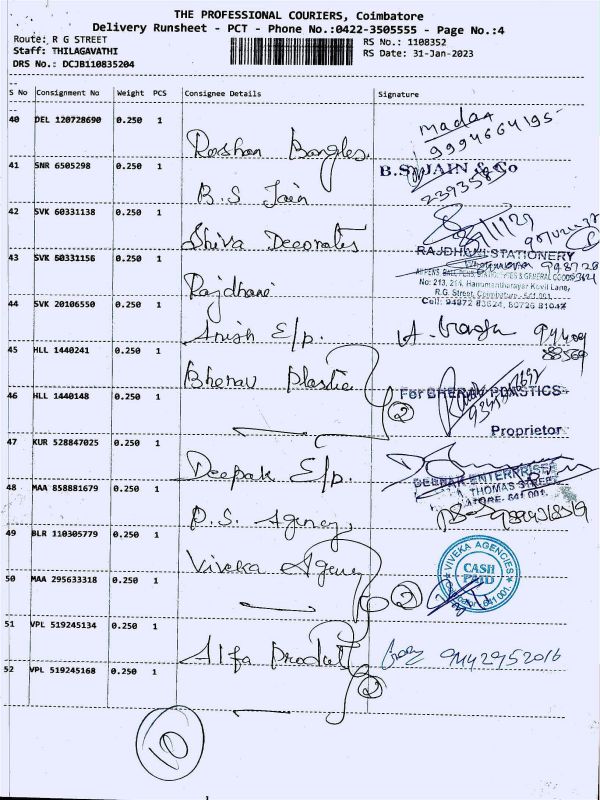 THE PROFESSIONAL COURIERS, Coimbatore
Delivery Runsheet - PCT - Phone No.:0422-3505555 - Page No.:4
Route: R G STREET
Staff: THILAGAVATHI
DRS No.: DCJB110835204
RS No.: 1108352
RS Date: 31-Jan-2023
S No Consignment No Weight PCS Consignee Details Signature
40 DEL 120728690 0.250 1 Roshan Bangles
Madan
9994664195
41 SNR 6505298 0.250 1 B.S Jain
B.S. JAIN & Co
42 SVK 60331138 0.250 1 Shiva Decorates
43 SVK 60331156 0.250 1 Rajdhani
RAJDHANI STATIONERY
No: 213, 214, Hanumantharayar Kovil Lane,
R.G. Street, Coimbatore - 641 001.
Cell: 94872 83624, 80726 81047
44 SVK 20106550 0.250 1 Anish E/p.
45 HLL 1440241 0.250 1 Bherav Plastic
46 HLL 1440148 0.250 1
2
For BHERAV PLASTICS
Proprietor
47 KUR 528847025 0.250 1 Deepak E/p.
DEEPAK ENTERPRISES
THOMAS STREET
48 MAA 858881679 0.250 1 P.S. Agency
49 BLR 110305779 0.250 1 Viveka Agency
50 MAA 295633318 0.250 1
2
VIVEKA AGENCIES
CASH
PAID
51 VPL 519245134 0.250 1 Alfa Product
9442952016
52 VPL 519245168 0.250 1
2
10